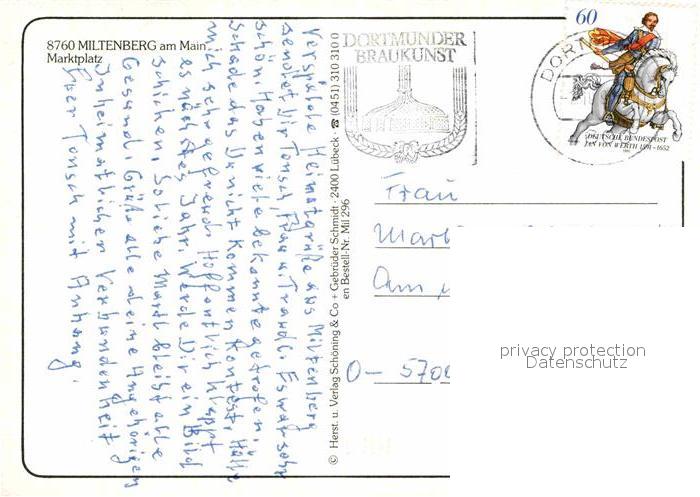 8760 MILTENBERG am Main
Marktplatz
Verspätete Heimatgrüße aus Miltenberg
sendet Dir Tonsch, Frau u. Traudl. Es war sehr
schön. Haben viele bekannte getroffen.
Schade das Du nicht kommen konntest. Hätte
mich sehr gefreut. Hoffentlich klappt
es nächstes Jahr. Werde Dir ein Bild
schicken. So liebe Martl bleibt alle
Gesund. Grüße alle deine Angehörigen
In heimatlicher Verbundenheit
Euer Tonsch mit Anhang.
© Herst. u. Verlag Schöning & Co + Gebrüder Schmidt · 2400 Lübeck · ☎ (0451) 310 310 0
en Bestell-Nr. Mil 296
DORTMUNDER
BRAUKUNST
DORTM
60
DEUTSCHE BUNDESPOST
JAN VON WERTH 1591-1652
Frau
Mart
Am
O- 570
privacy protection
Datenschutz